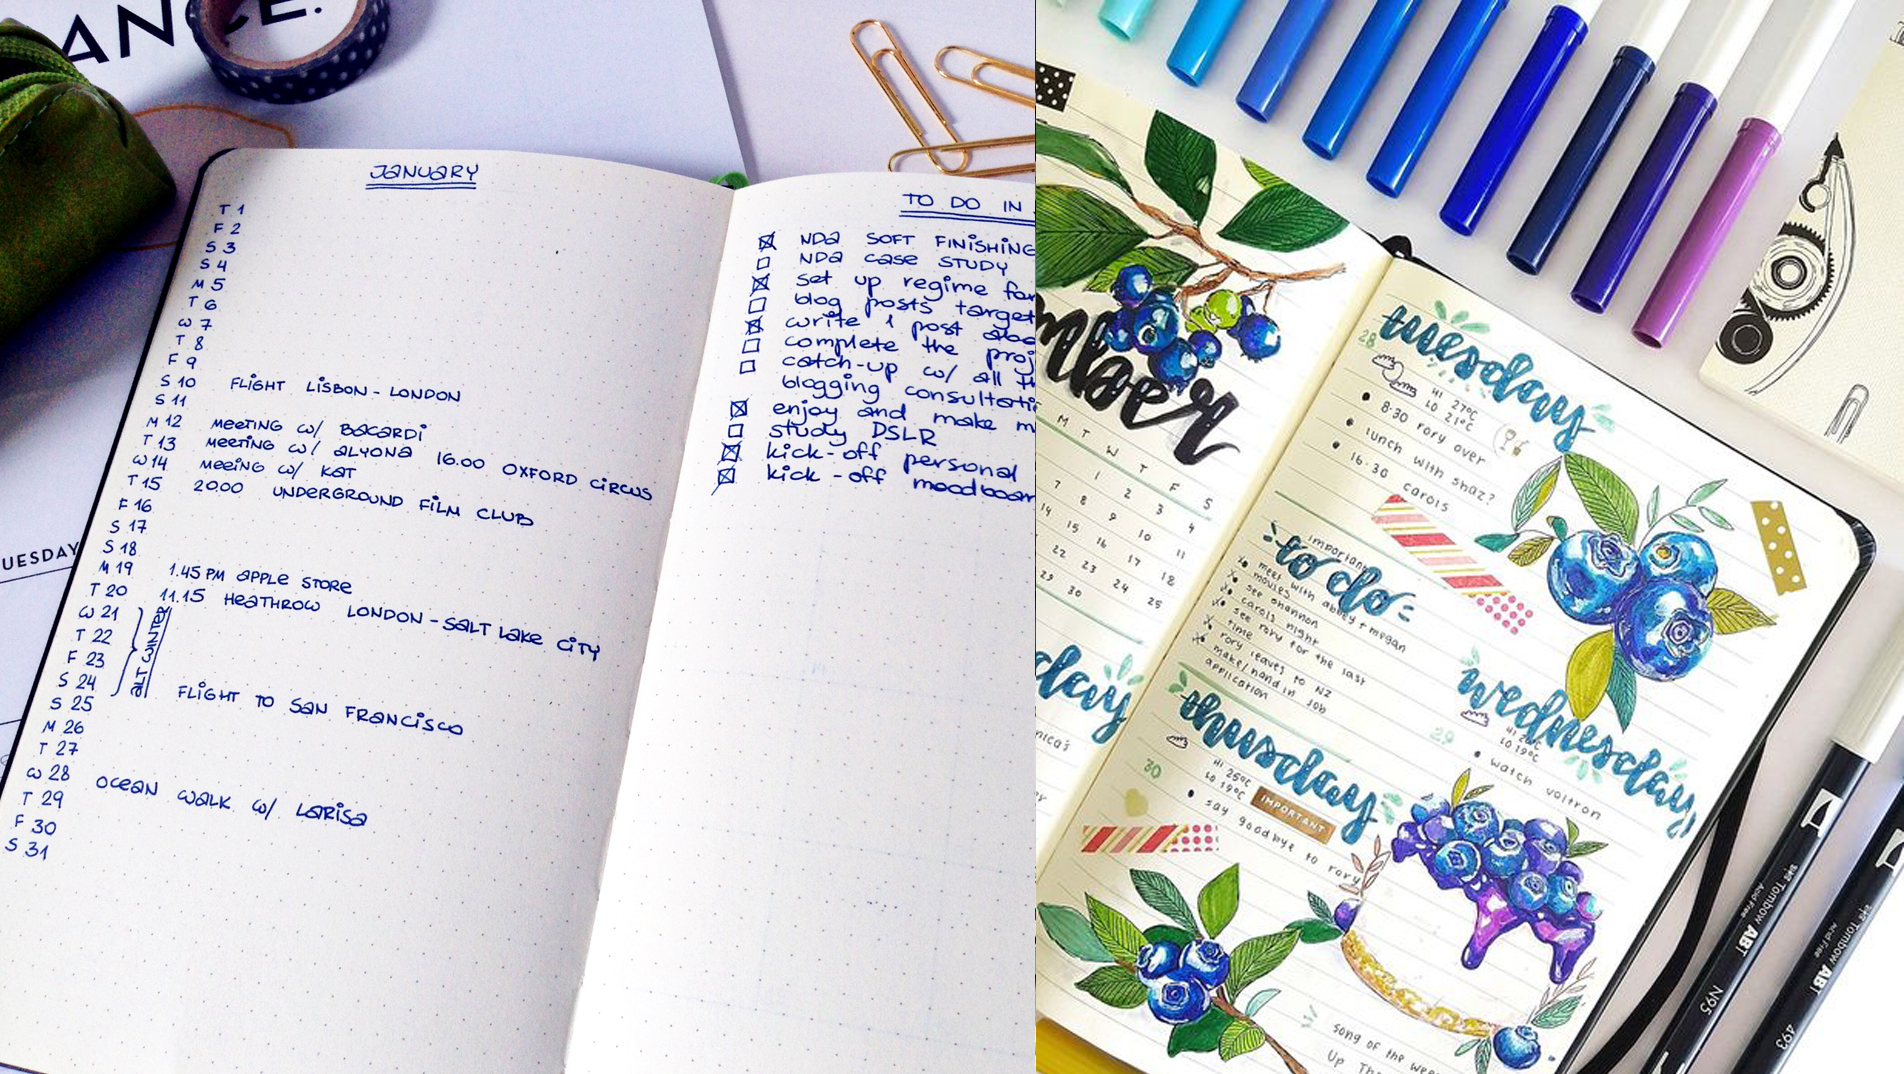 ANCE.
UESDAY
JANUARY
T 1
F 2
S 3
S 4
M 5
T 6
W 7
T 8
F 9
S 10 FLIGHT LISBON - LONDON
S 11
M 12 MEETING W/ BACARDI
T 13 MEETING W/ ALYONA 16.00 OXFORD CIRCUS
W 14 MEEING W/ KAT
T 15 20.00 UNDERGROUND FILM CLUB
F 16
S 17
S 18
M 19 1.45 PM APPLE STORE
T 20 11.15 HEATHROW LONDON - SALT LAKE CITY
W 21
T 22
F 23
S 24
ALT WINTER
S 25 FLIGHT TO SAN FRANCISCO
M 26
T 27
W 28 OCEAN WALK W/ LARISA
T 29
F 30
S 31
TO DO IN
NDA SOFT FINISHING
NDA CASE STUDY
set up regime for
blog posts target
write 1 post abo
complete the proj
catch-up w/ all th
blogging consultati
enjoy and make m
study DSLR
kick-off personal
kick-off moodboar
mber
M T W T F S
1 2 3 4
7 8 9 10 11
14 15 16 17 18
22 23 24 25
29 30
day
nica's
tuesday
28
HI 27°C
LO 21°C
8:30 rory over
lunch with shaz?
16:30 carols
important
to do
meet with abbey + megan
movies
see shannon
carols night
see rory for the last
time
rory leaves to NZ
make/hand in job
application
wednesday
29
LO 19°C
watch voltron
thursday
30
HI 25°C
LO 19°C
IMPORTANT
say goodbye to rory
song of the wee
Up Th
Tombow ABT
Acid Free
N95
Tombow ABT
Acid Free
493